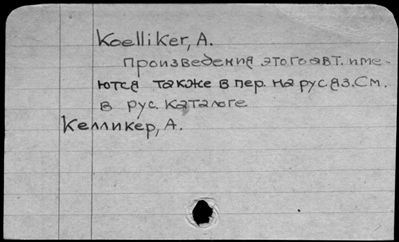 Koelliker, A.
Произведения этого авт. име-
ются также в пер. на рус яз. См.
в рус. каталоге
Келликер, А.